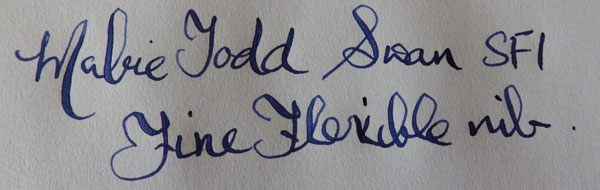 Mabie Todd Swan SF1
Fine Flexible nib.